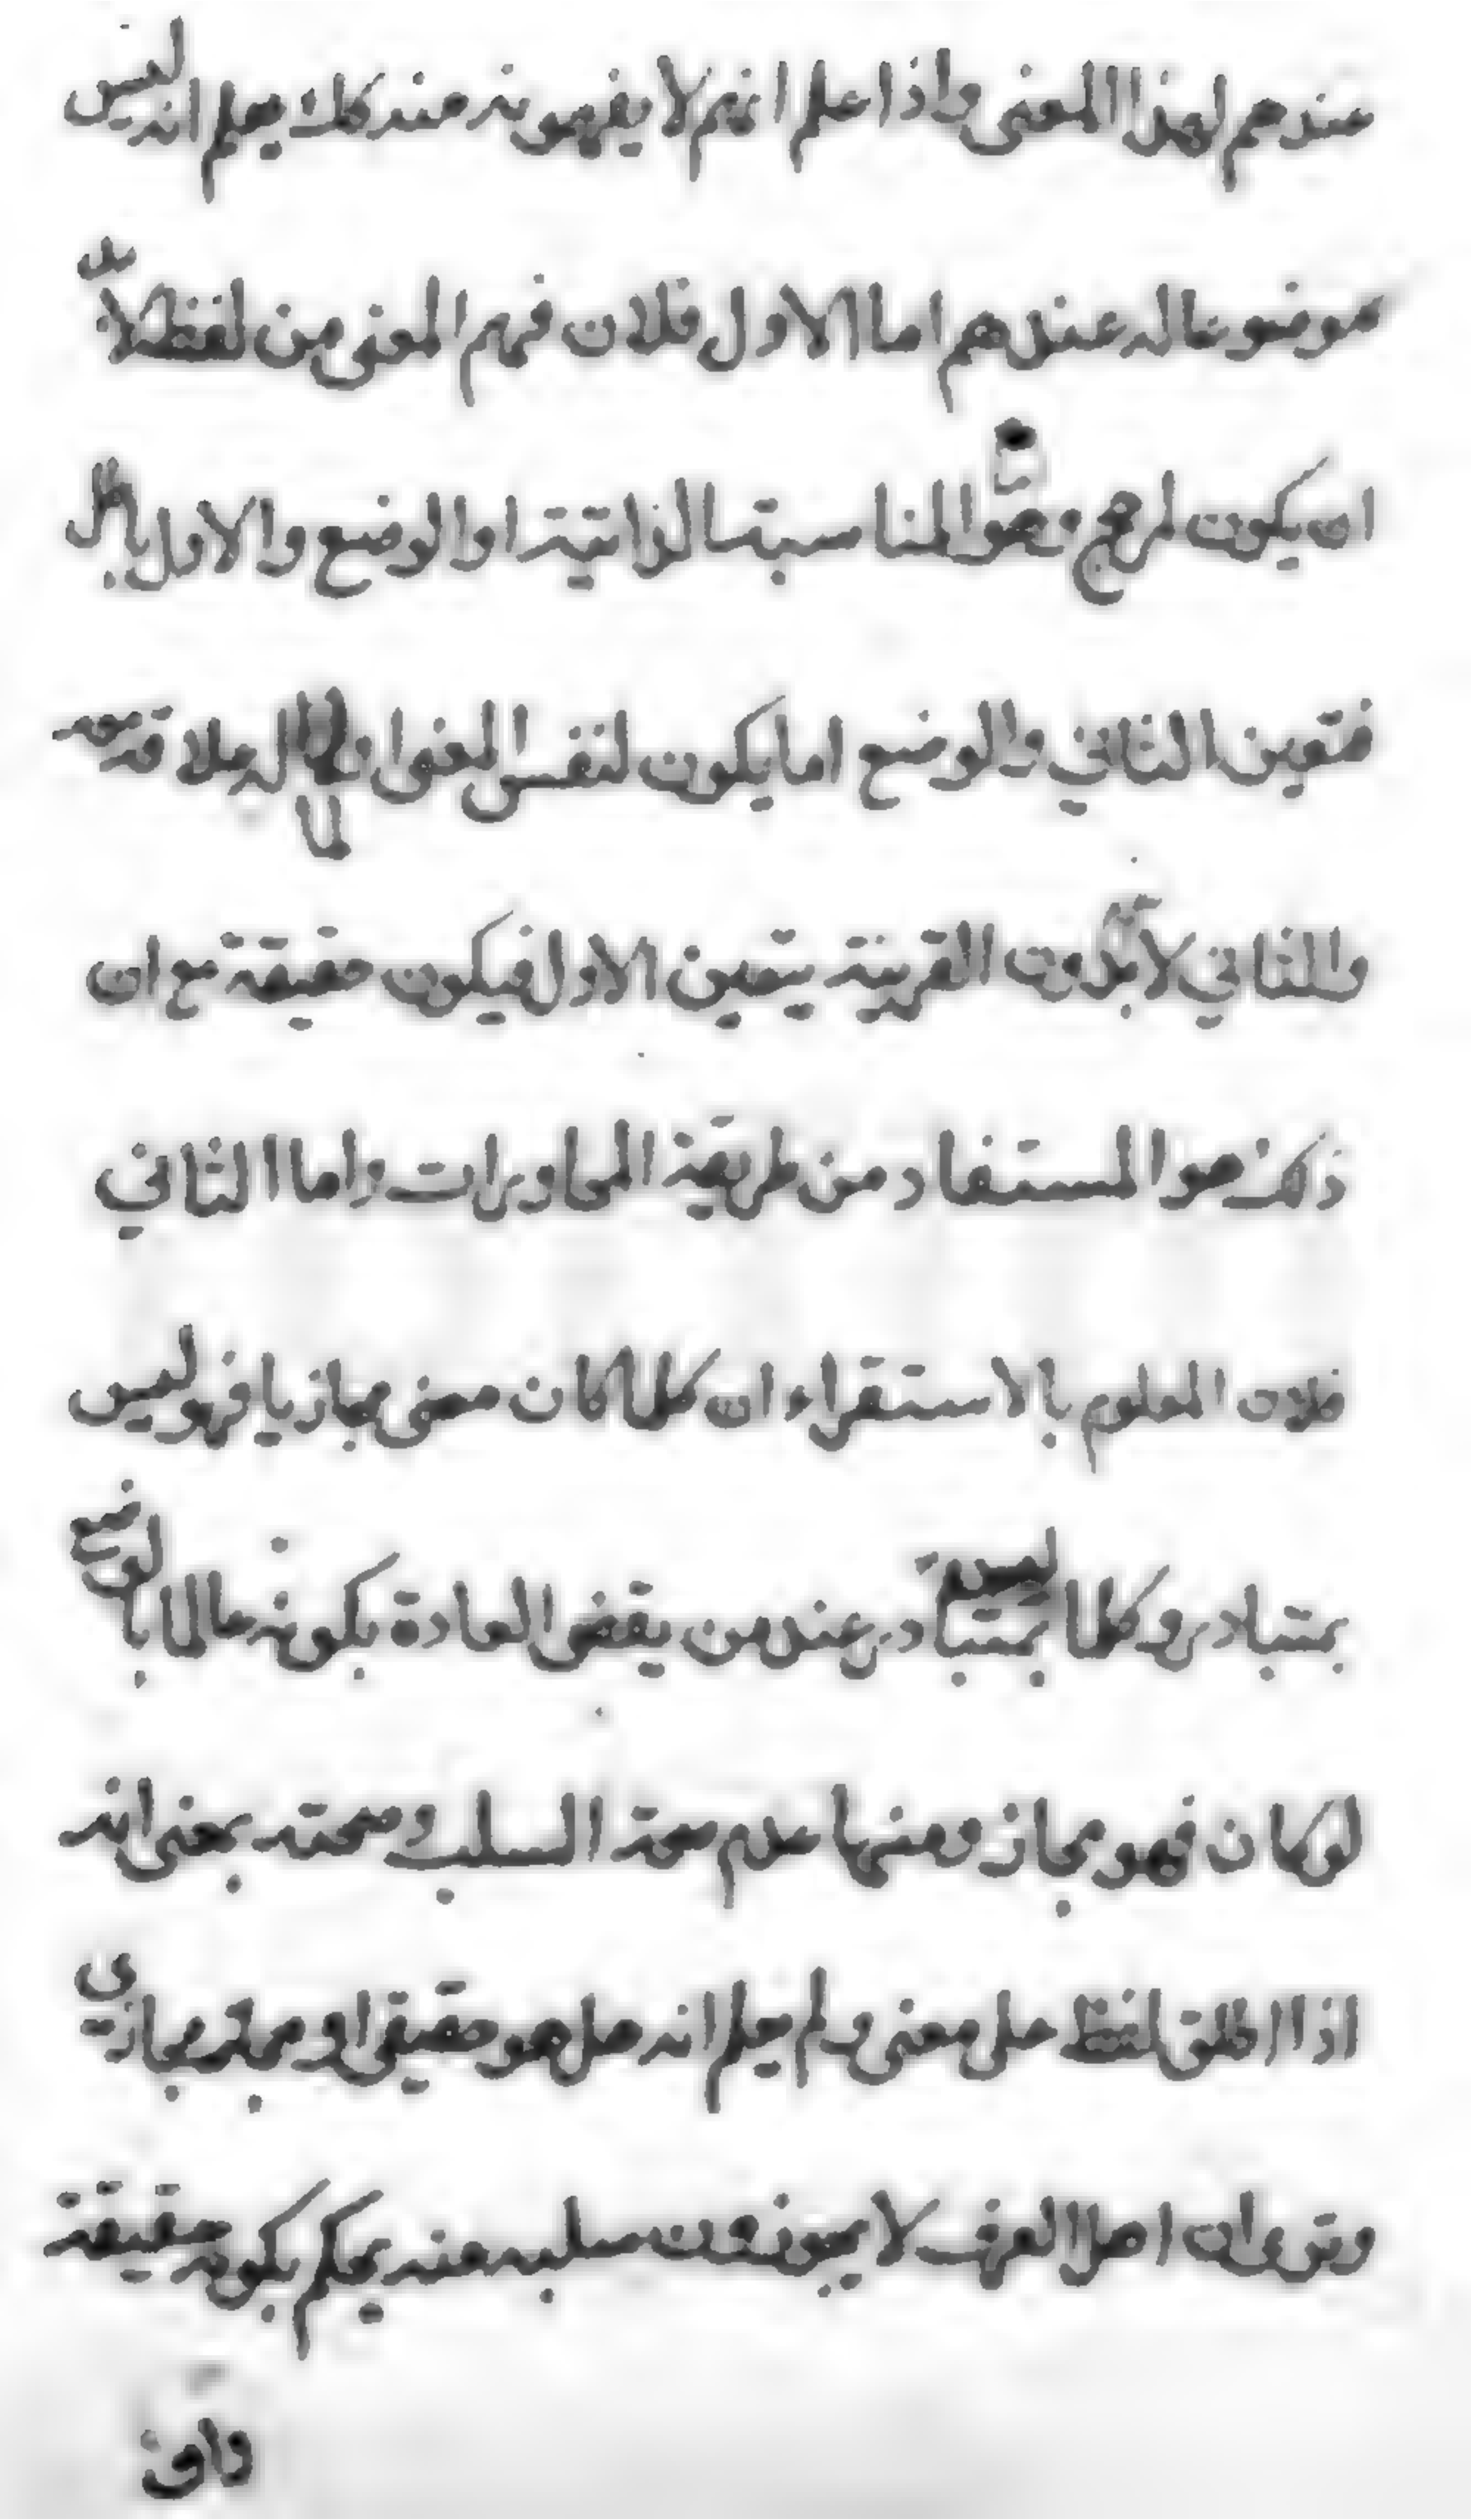 عندهم لهذا المعنى واذا علم انهم لا يفهمونه منه كك يعلم انه ليس
موضوعا له عندهم اما الاول فلان فهم المعنى من لفظ لابد
ان يكون لمرجح وهو المناسبة الذاتية او الوضع والاول باطل
فتعين الثاني والوضع اما يكون لنفس المعنى او لما له علاقة معه
والثاني لا بدون القرينة يتعين الاول فيكون حقيقة مع ان
ذلك هو المستفاد من طريقة المحاورات واما الثاني
فلان المعلوم بالاستقراء ان كلما كان معنى مجازيا فهو ليس
بمتبادر وكلما ليس بمتبادر عند من يقضى العادة بكونه عالما بالوضع
لو كان فهو مجاز ومنها عدم صحة السلب وصحته بمعنى انه
اذا اطلق لفظ على معنى ولم يعلم انه هل هو حقيقى او مجازي
وترى ان اهل العرف لا يجوزون سلبه عنه يحكم بكونه حقيقة
وان